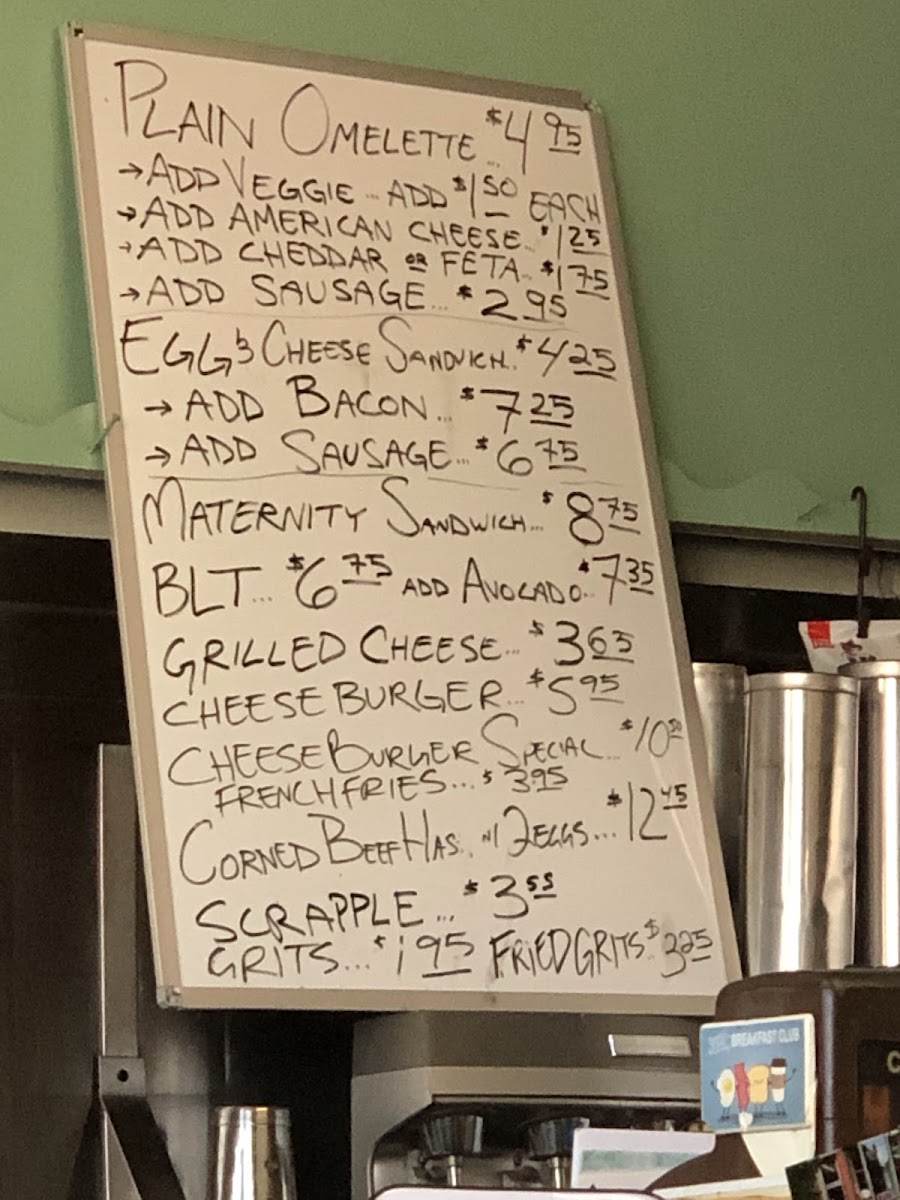 PLAIN OMELETTE... $4 95
→ADD VEGGIE... ADD $1 50 EACH
→ADD AMERICAN CHEESE.. $1 25
→ADD CHEDDAR OR FETA.. $1 75
→ADD SAUSAGE... $2 95
EGG & CHEESE SANDWICH. $4 25
→ ADD BACON... $7 25
→ ADD SAUSAGE... $6 75
MATERNITY SANDWICH... $8 75
BLT... $6 75 ADD AVOCADO.. $7 35
GRILLED CHEESE... $3 65
CHEESE BURGER... $5 95
CHEESE BURGER SPECIAL... $10 50
FRENCH FRIES... $3.95
CORNED BEEF HAS.. W/ 2 EGGS... $12 45
SCRAPPLE... $3 55
GRITS... $1 95 FRIED GRITS $3 25
BREAKFAST CLUB